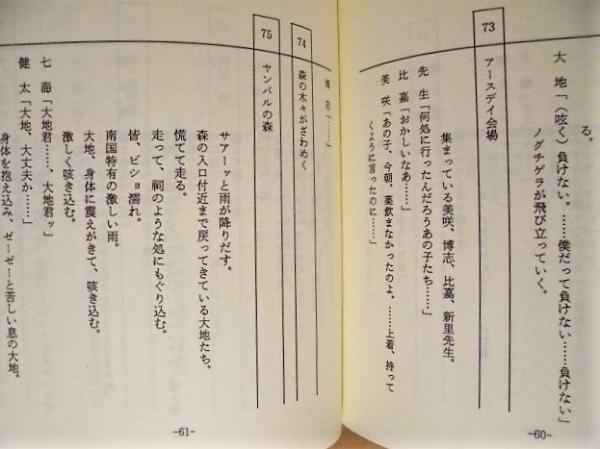 る。
大 地「（呟く）負けない。……僕だって負けない……負けない」
ノグチゲラが飛び立っていく。
73 アースデイ会場
集まっている美咲、博志、比嘉、新里先生。
先 生「何処に行ったんだろうあの子たち……」
比 嘉「おかしいなあ……」
美 咲「あの子、今朝、薬飲まなかったのよ。……上着、持って
くように言ったのに……」
-60-
博 志「……」
74 森の木々がざわめく
75 ヤンバルの森
サアーッと雨が降りだす。
森の入口付近まで戻ってきている大地たち。
慌てて走る。
走って、祠のような処にもぐり込む。
皆、ビショ濡れ。
南国特有の激しい雨。
大地、身体に震えがきて、咳き込む。
激しく咳き込む。
七 海「大地君……、大地君ッ」
健 太「大地、大丈夫か……」
身体を抱え込み、ゼーゼーと苦しい息の大地。
-61-